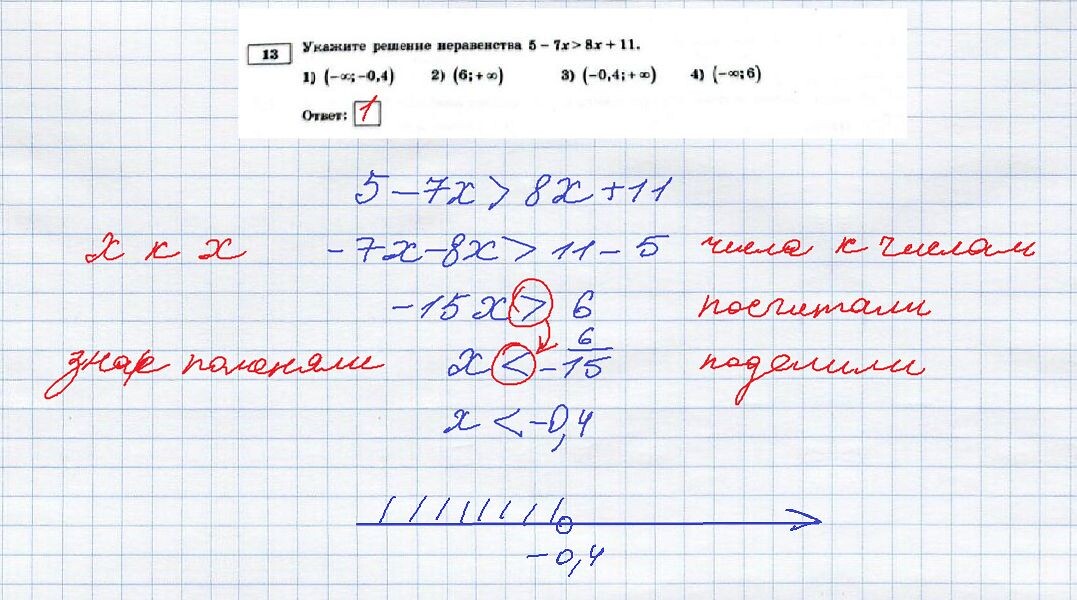 13 Укажите решение неравенства 5 − 7x > 8x + 11.
1) (−∞; −0,4) 2) (6; +∞) 3) (−0,4; +∞) 4) (−∞; 6)
Ответ: 1
5 − 7x > 8x + 11
x к x −7x − 8x > 11 − 5 числа к числам
−15x > 6 посчитали
знак поменяли x < 6/−15 поделили
x < −0,4
−0,4